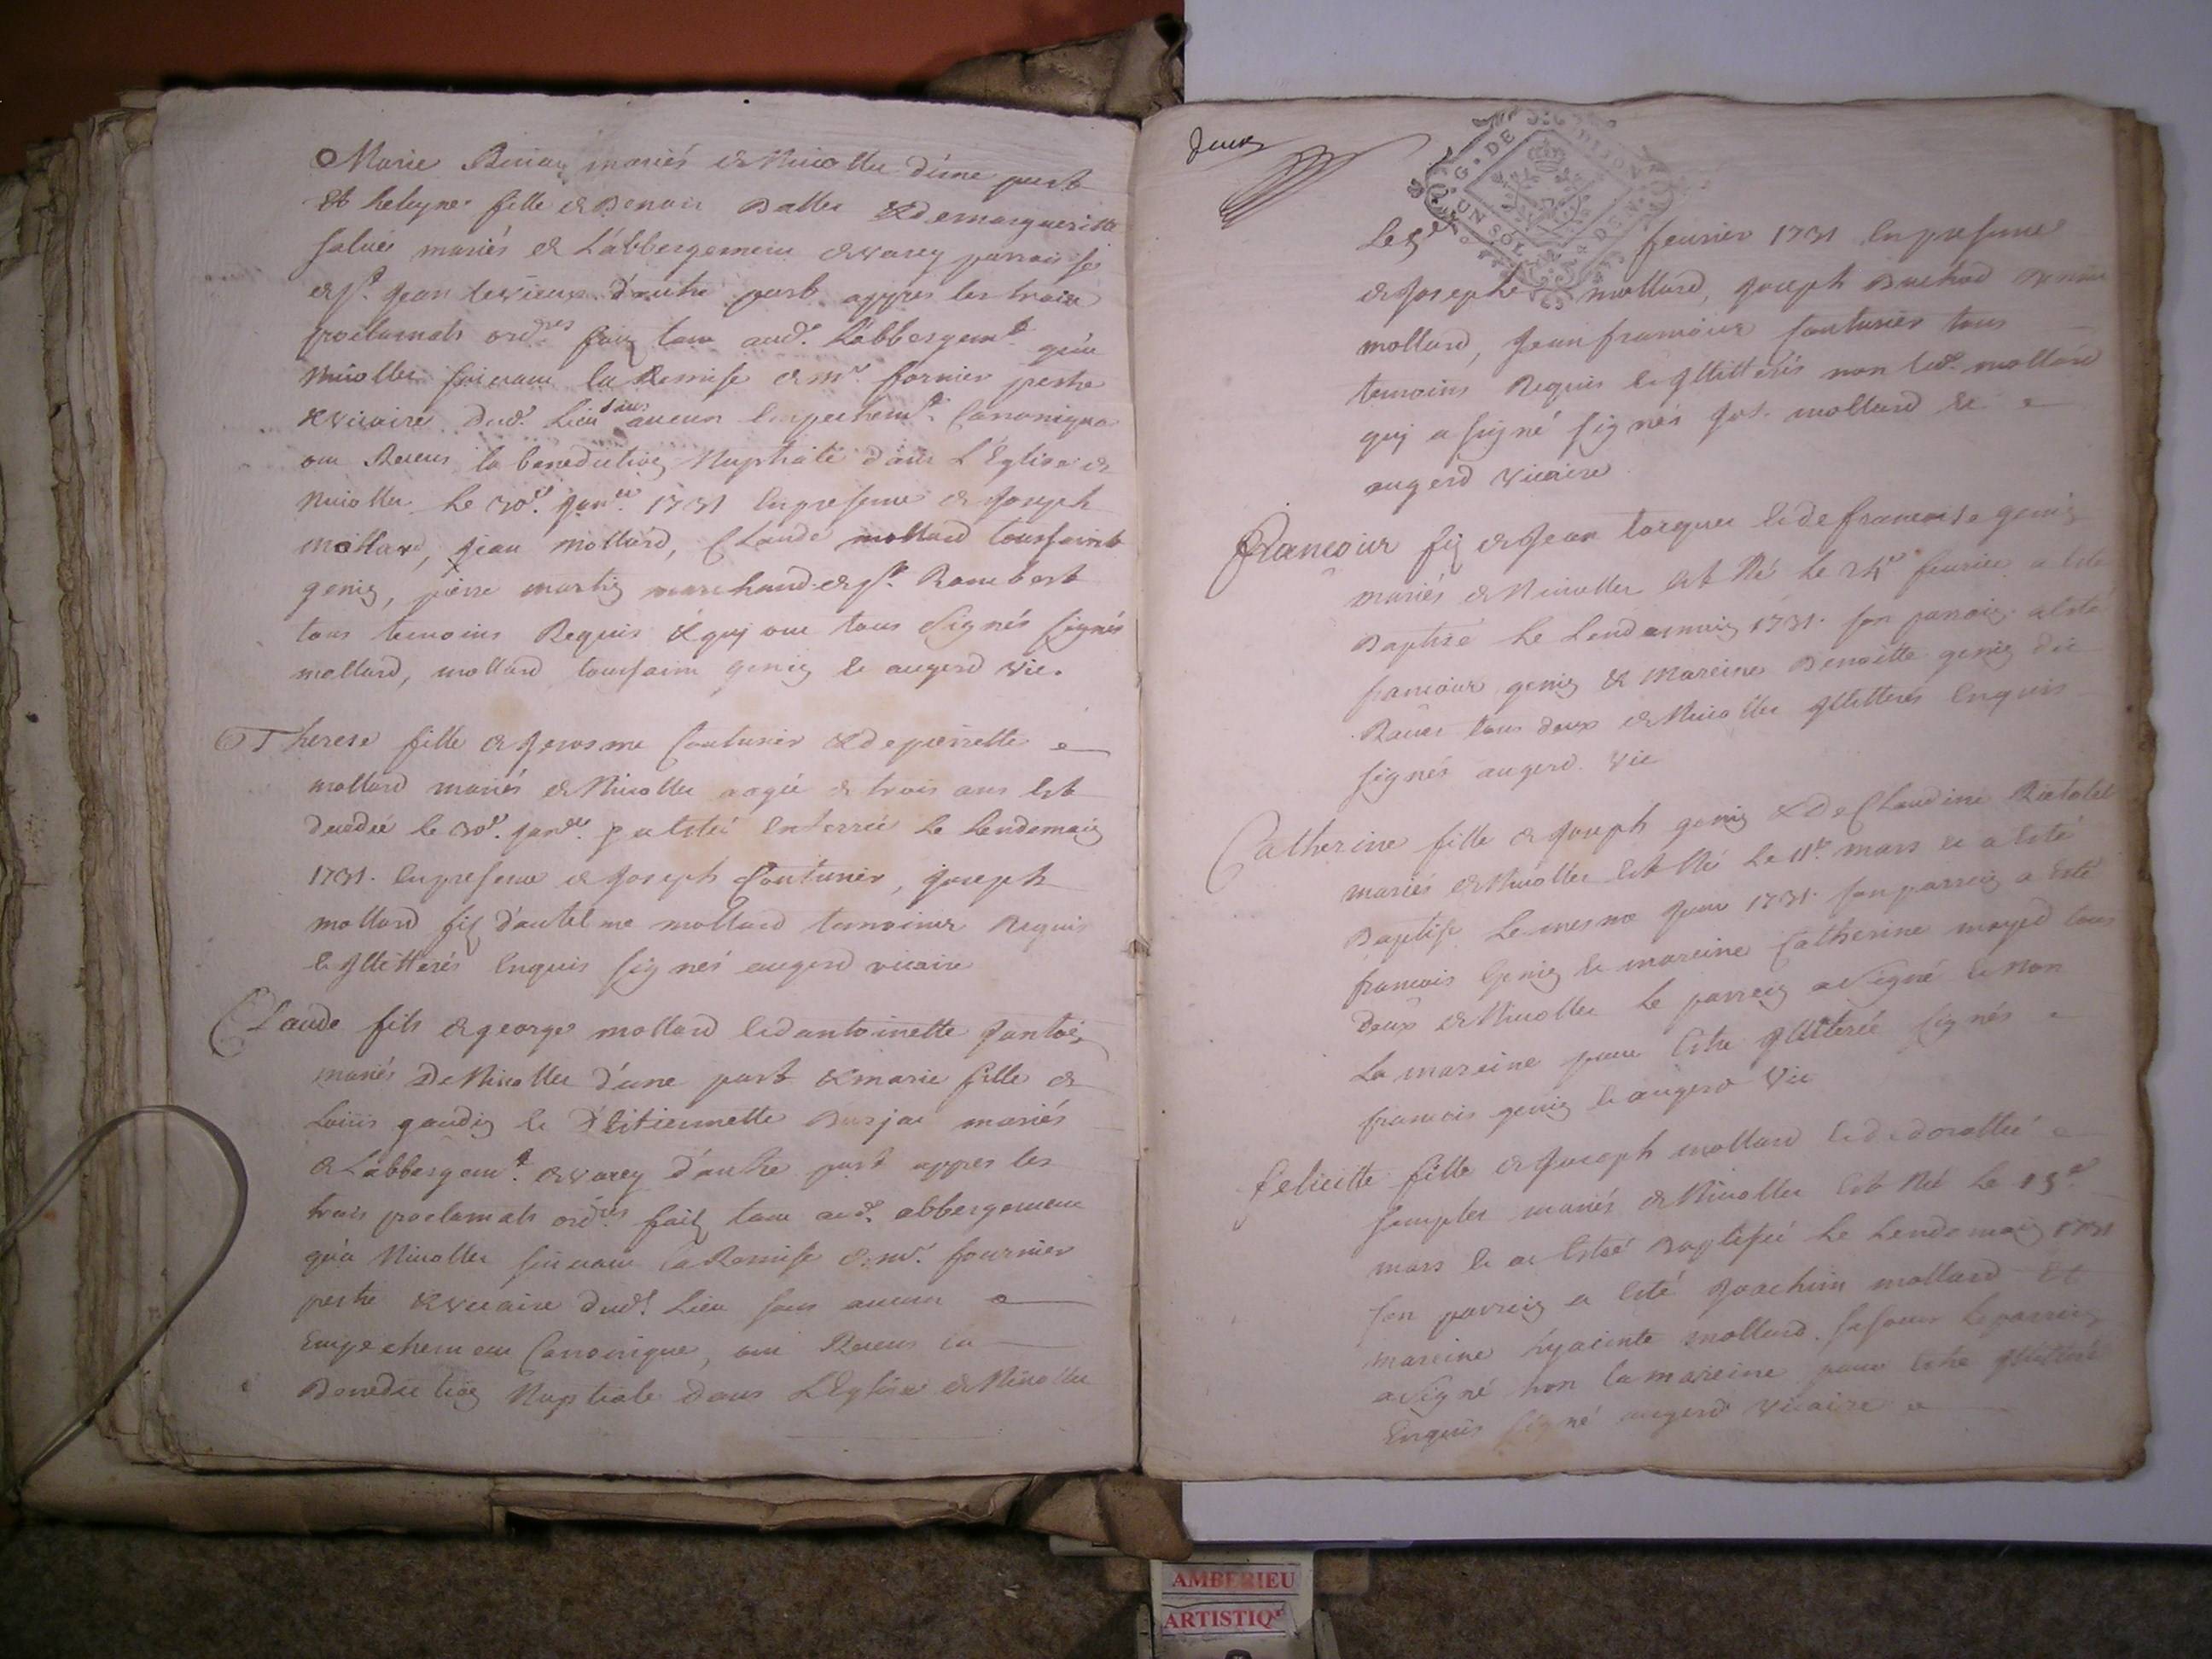 Marie mariés de Nivollet d'une part
Et heleyne fille de Benoit Ballet & de margueritte
mariés de L'abbergement de varey parroisse
de st. Jean levieux d'autre part appres les trois
proclamats ordres. faitz tant aud. L'abbergemt. qu'a
Nivollet suivant la Remise de mr. fornier pestre
& vicaire dud. Lieu sans aucun Empechemt. Canonique
ont Receus la benediction Nuptiale dans L'Eglise de
Nivollet le 30e. Janer. 1731 En presence de Joseph
Mollard, Jean Mollard, Claude mollard toussaint
genin, pierre martin marchand de st. Rambert
tous temoins Requis & qui ont tous signés signés
mollard, mollard toussaint genin et augerd vic.
Therese fille de Jerosme Couturier & de pierrette
mollard mariés de Nivollet aagée de trois ans Est
decedée le 30e. janer. & a Esté Enterrée le Lendemain
1731. En presence de Joseph Couturier, Joseph
mollard filz d'antelme mollard temoins Requis
et Illitterés Enquis signés augerd vicaire
Claude fils de george mollard et d'antoinette
mariés De Nivollet d'une part & marie fille de
Louis gaudin et d'Estiennette mariés
de L'abbergemt. de varey d'autre part appres les
trois proclamats ordres. faitz tant aud. abbergement
qu'a Nivollet suivant la Remise de mr. fournier
pestre & vicaire dud. Lieu sans aucun
Empechement Canonique, ont Receus la
Benediction Nuptiale dans L'Eglise de Nivollet
G. DE DIJON
UN SOL
Le 5e fevrier 1731 En presence
de Joseph mollard, Joseph
mollard, Jean francois couturier tous
temoins Requis et Illitterés non led. mollard
qui a signé signés Jos. mollard et
augerd vicaire
Francois filz de Jean et de francoise genin
mariés de Nivollet Est Né le 24e fevrier a Esté
Baptisé le Lendemain 1731. son parrain a esté
francois genin & mareine Benoitte genin dit
tous deux de Nivollet Illitterés Enquis
signés augerd. vic
Catherine fille de Joseph genin & De Claudine
mariés de Nivollet Est Né le 11e. mars et a Esté
Baptisé le mesme Jour 1731. son parrein a Esté
francois Genin et mareine Catherine tous
Deux de Nivollet le parrein a signé et non
La mareine pour Estre Illiterée signés
francois genin et augerd vic
felicitte fille de Joseph mollard et de dorothée
mariés de Nivollet Est Né le 15e.
mars et a Estée Baptisée le Lendemain 1731
son parrein a Esté Joachim mollard Et
mareine hyacinte mollard. sa soeur le parrein
a signé non la mareine pour Estre Illitterée
Enquis signé augerd vicaire
AMBERIEU
ARTISTIQ